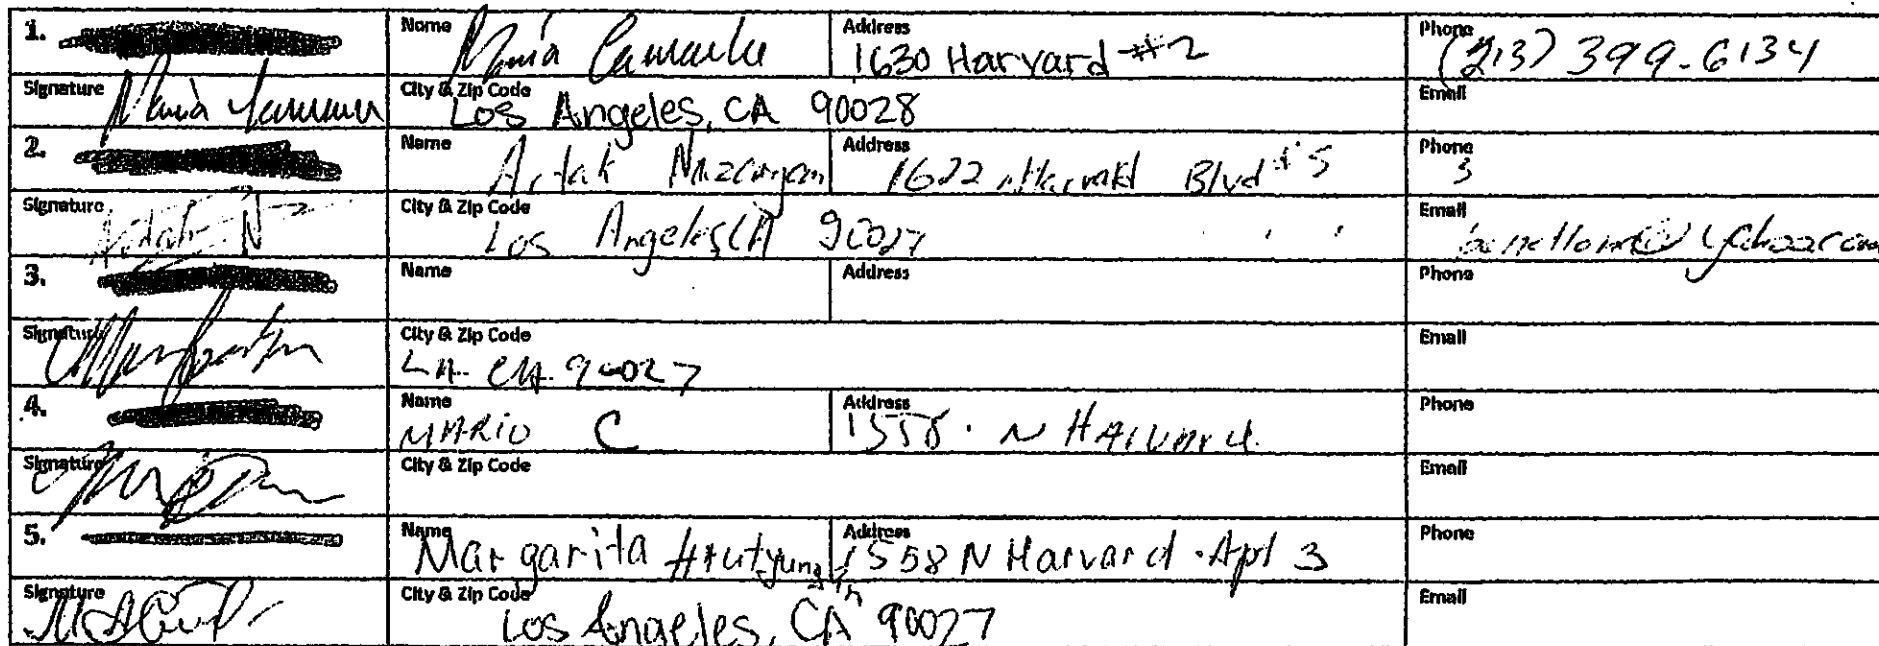 1. Name Maria Address 1630 Harvard #2 Phone (213) 399-6134
Signature Maria City & Zip Code Los Angeles, CA 90028 Email
2. Name Artak Address 1622 Harvard Blvd #5 Phone 3
Signature Artak N City & Zip Code Los Angeles CA 90027 Email
3. Name Address Phone
Signature City & Zip Code LA CA 90027 Email
4. Name MARIO C Address 1558 N HARVARD Phone
Signature City & Zip Code Email
5. Name Margarita Address 1558 N Harvard Apt 3 Phone
Signature City & Zip Code Los Angeles, CA 90027 Email